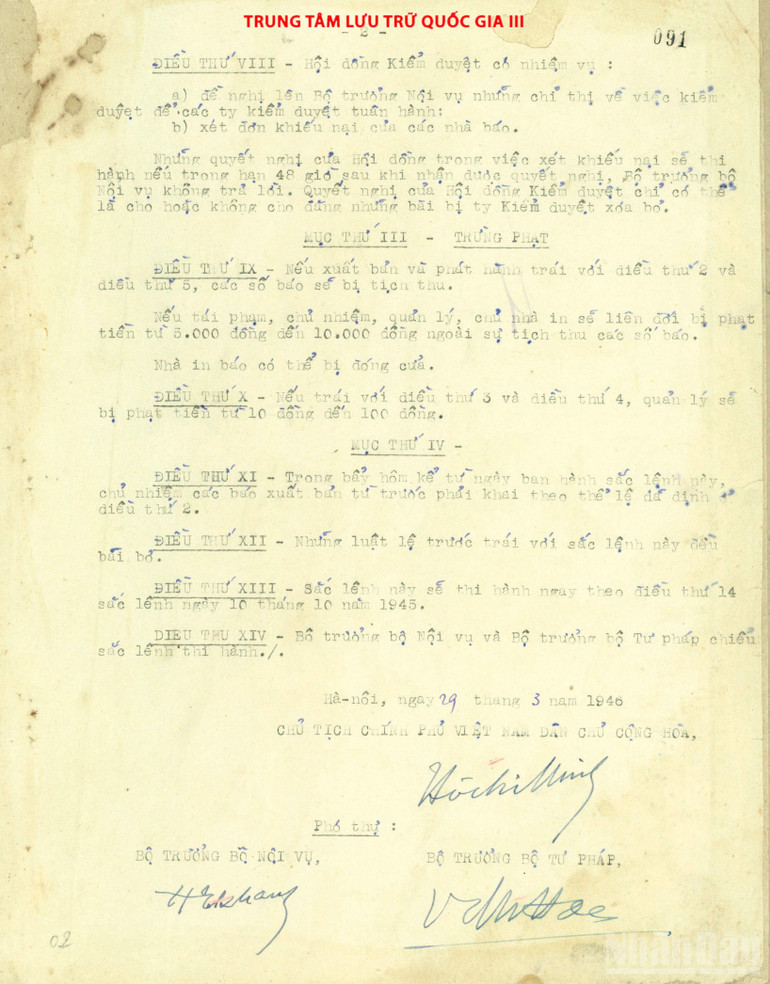 TRUNG TÂM LƯU TRỮ QUỐC GIA III
- 2 -
091
ĐIỀU THỨ VIII - Hội đồng Kiểm duyệt có nhiệm vụ :
a) đề nghị lên Bộ trưởng Nội vụ những chỉ thị về việc kiểm
duyệt để các ty kiểm duyệt tuân hành:
b) xét đơn khiếu nại của các nhà báo.
Những quyết nghị của Hội đồng trong việc xét khiếu nại sẽ thi
hành nếu trong hạn 48 giờ sau khi nhận được quyết nghị, Bộ trưởng bộ
Nội vụ không trả lời. Quyết nghị của Hội đồng Kiểm duyệt chỉ có thể
là cho hoặc không cho đăng những bài bị ty Kiểm duyệt xóa bỏ.
MỤC THỨ III - TRỪNG PHẠT
ĐIỀU THỨ IX - Nếu xuất bản và phát hành trái với điều thứ 2 và
điều thứ 5, các số báo sẽ bị tịch thu.
Nếu tái phạm, chủ nhiệm, quản lý, chủ nhà in sẽ liên đới bị phạt
tiền từ 5.000 đồng đến 10.000 đồng ngoài sự tịch thu các số báo.
Nhà in báo có thể bị đóng cửa.
ĐIỀU THỨ X - Nếu trái với điều thứ 3 và điều thứ 4, quản lý sẽ
bị phạt tiền từ 10 đồng đến 100 đồng.
MỤC THỨ IV -
ĐIỀU THỨ XI - Trong bẩy hôm kể từ ngày ban hành sắc lệnh này,
chủ nhiệm các báo xuất bản từ trước phải khai theo thể lệ đã định ở
điều thứ 2.
ĐIỀU THỨ XII - Những luật lệ trước trái với sắc lệnh này đều
bãi bỏ.
ĐIỀU THỨ XIII - Sắc lệnh này sẽ thi hành ngay theo điều thứ 14
sắc lệnh ngày 10 tháng 10 năm 1945.
DIEU THU XIV - Bộ trưởng bộ Nội vụ và Bộ trưởng bộ Tư pháp chiếu
sắc lệnh thi hành./.
Hà-nội, ngày 29 tháng 3 năm 1946
CHỦ TỊCH CHÍNH PHỦ VIỆT NAM DÂN CHỦ CỘNG HÒA,
Hồ Chí Minh
Phó thự :
BỘ TRƯỞNG BỘ NỘI VỤ,
BỘ TRƯỞNG BỘ TƯ PHÁP,
02
NhânDân